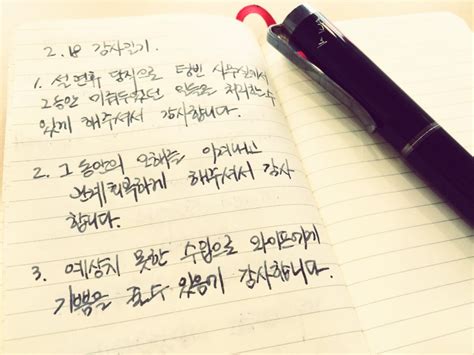 2.18 감사일기.
1. 설 연휴 당직으로 텅빈 사무실에서
그동안 미뤄두었던 일들을 처리할 수
있게 해주셔서 감사합니다.
2. 그동안의 오해를 이겨내고
관계회복하게 해주셔서 감사
합니다.
3. 예상치 못한 수입으로 와이프에게
기쁨을 줄 수 있음에 감사합니다.